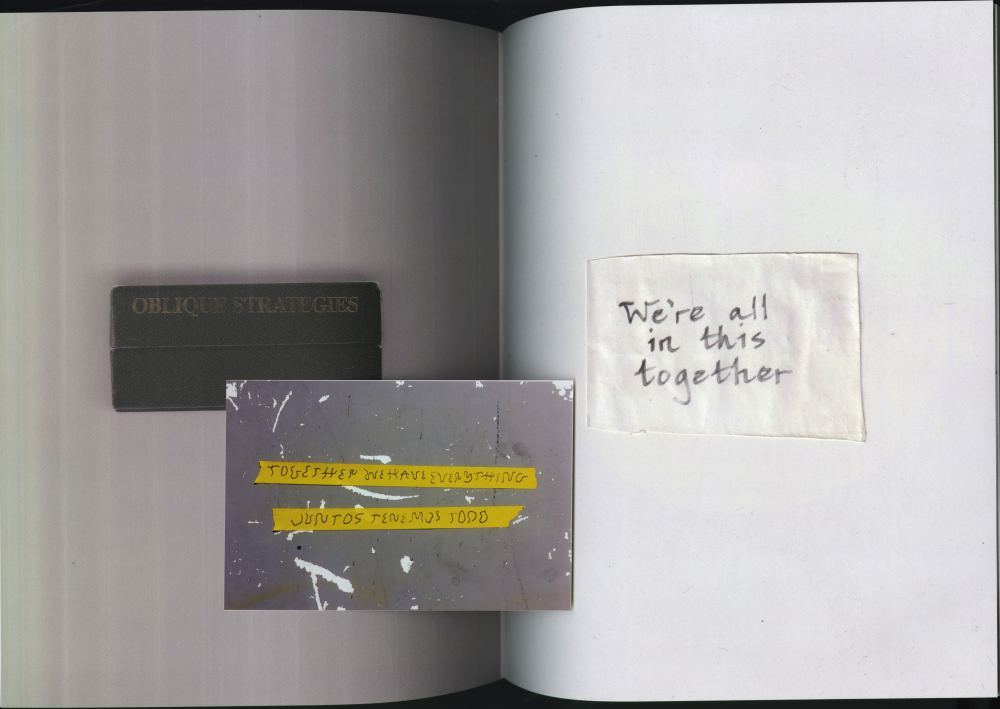 OBLIQUE STRATEGIES
TOGETHER WE HAVE EVERYTHING
JUNTOS TENEMOS TODO
We're all
in this
together